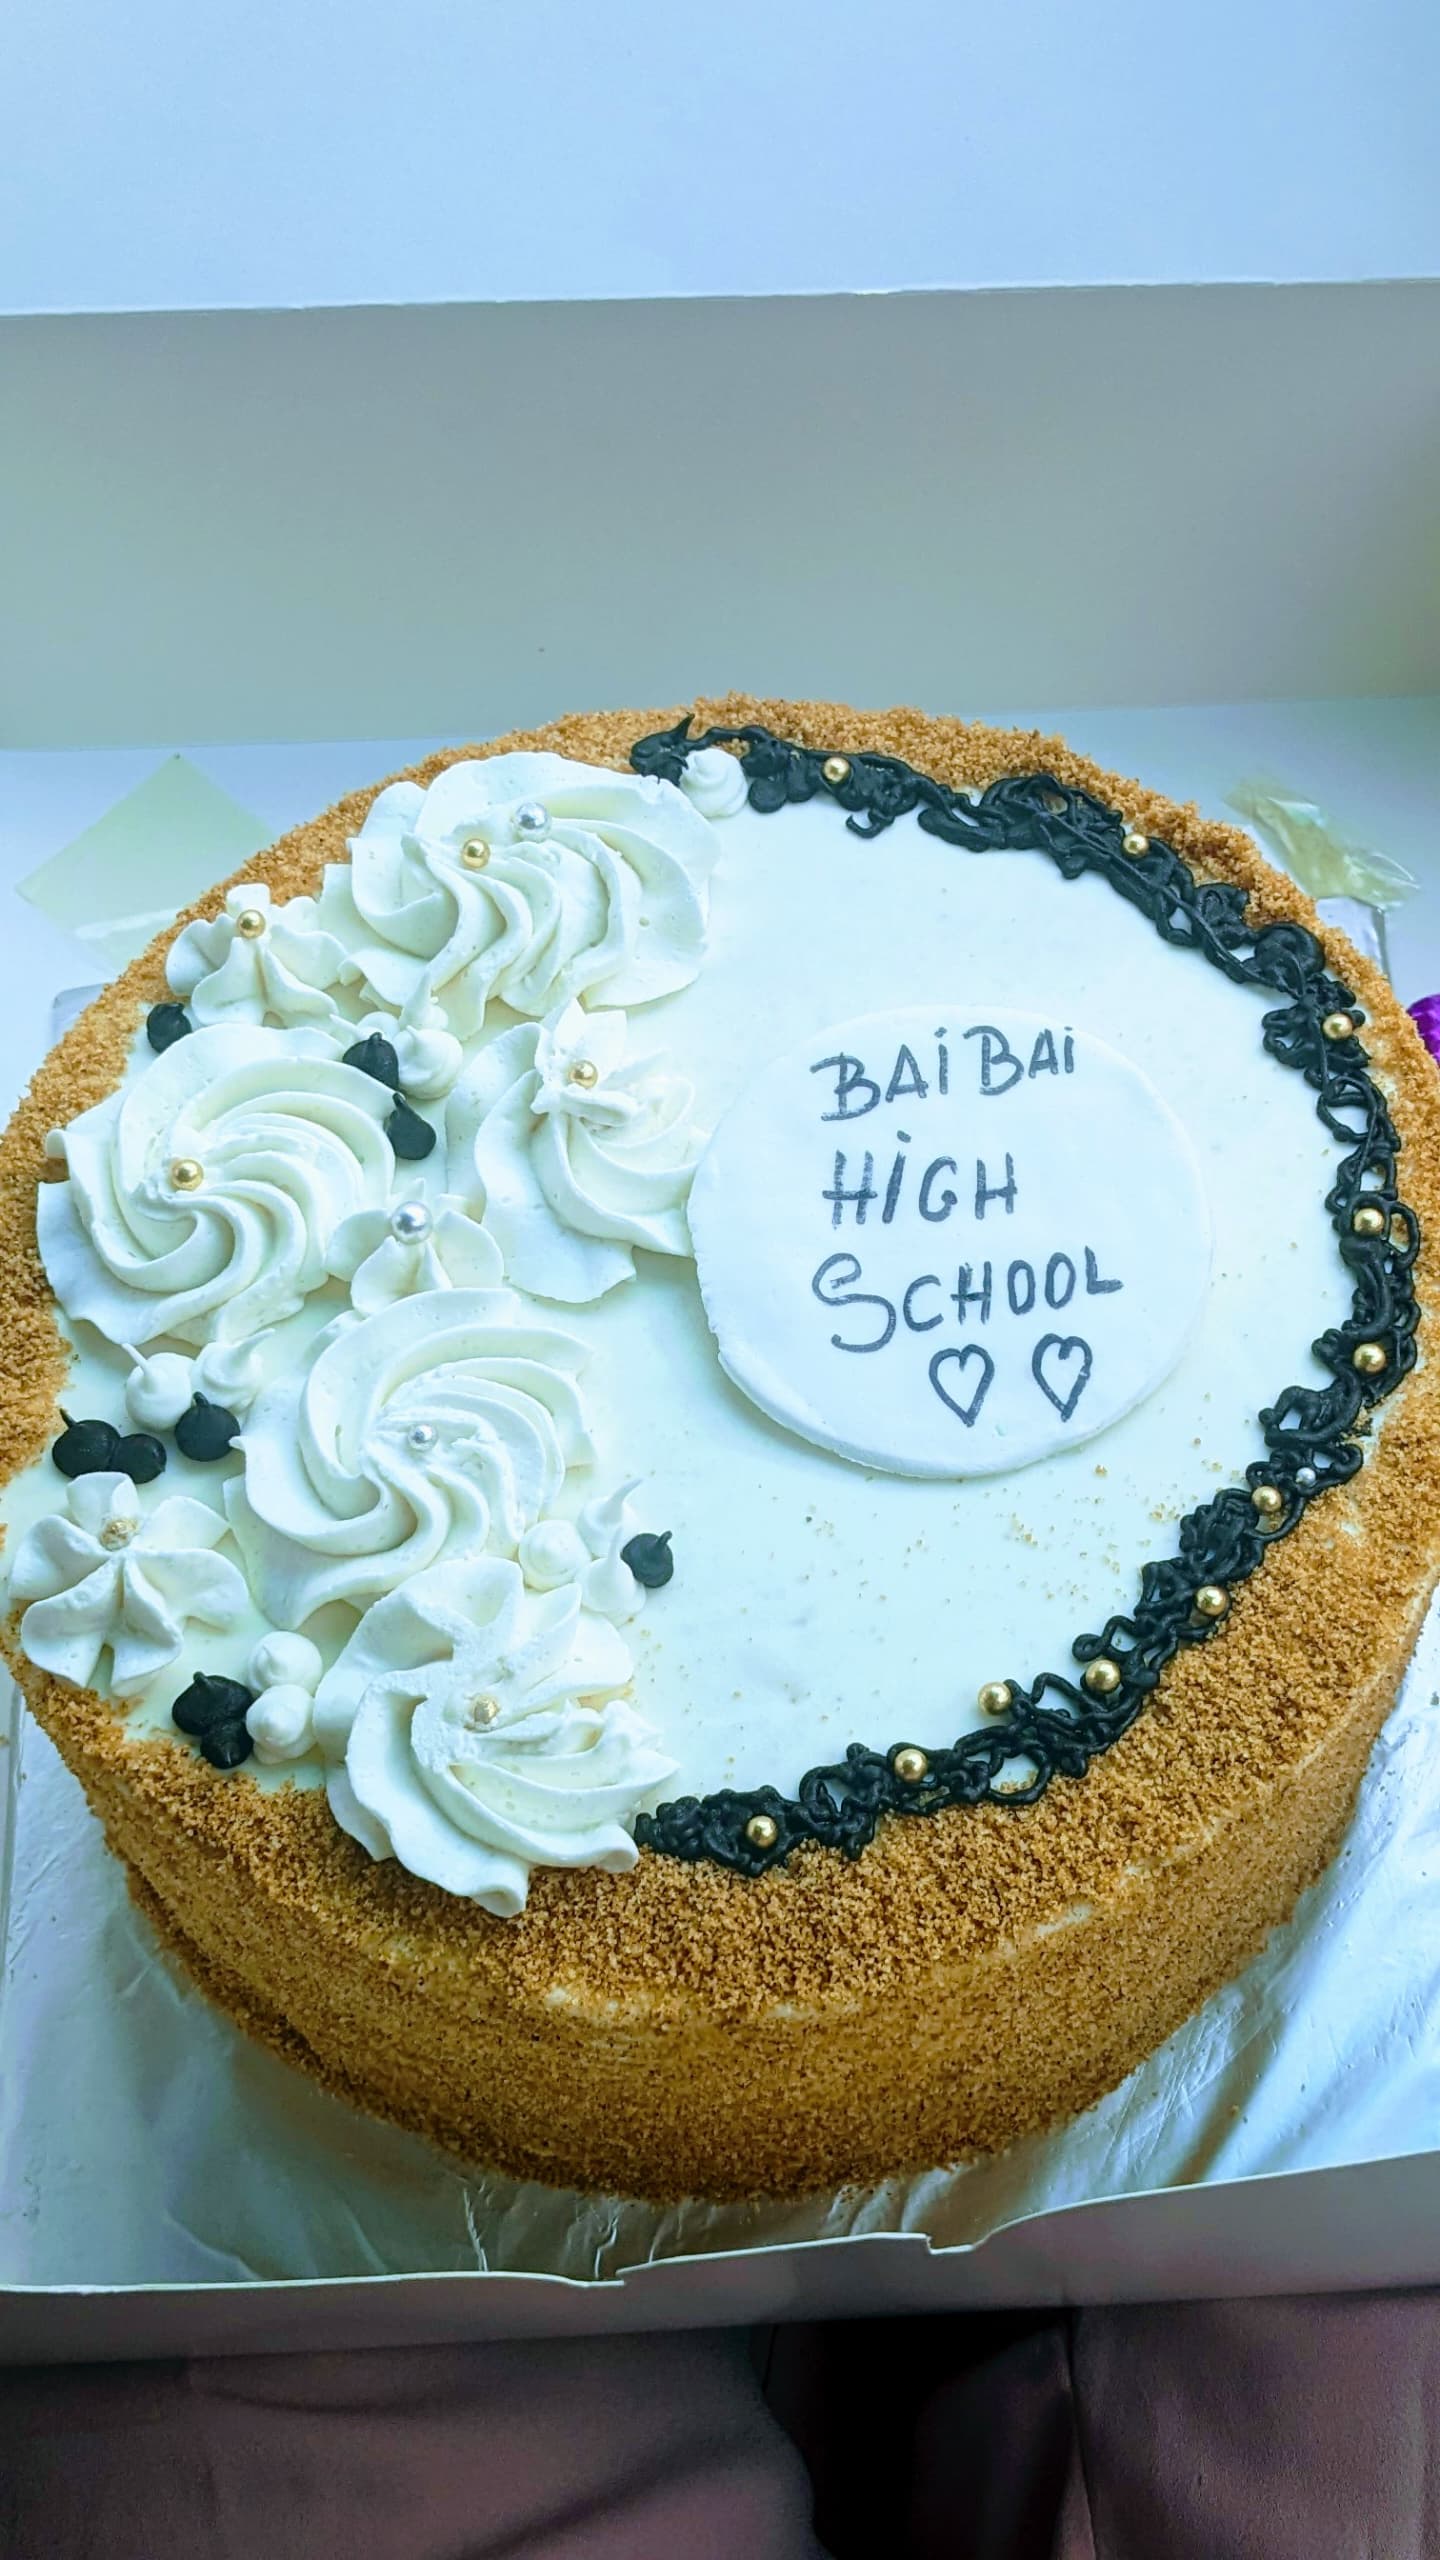 BAiBAi
HiGH
SCHOOL
♡ ♡